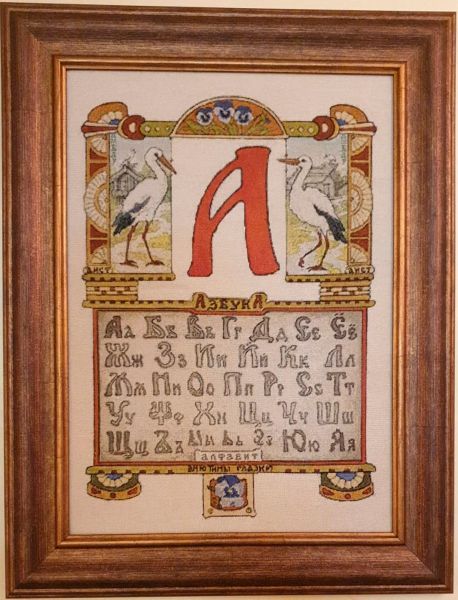 А
АИСТ АИСТ
АЗБУКА
Аа Бб Вв Гг Дд Ее Ёё
Жж Зз Ии Йй Кк Лл
Мм Нн Оо Пп Рр Сс Тт
Уу Фф Хх Цц Чч Шш
Щщ Ъъ Ыы Ьь Ээ Юю Яя
АЛФАВИТ
АНЮТИНЫ ГЛАЗКИ